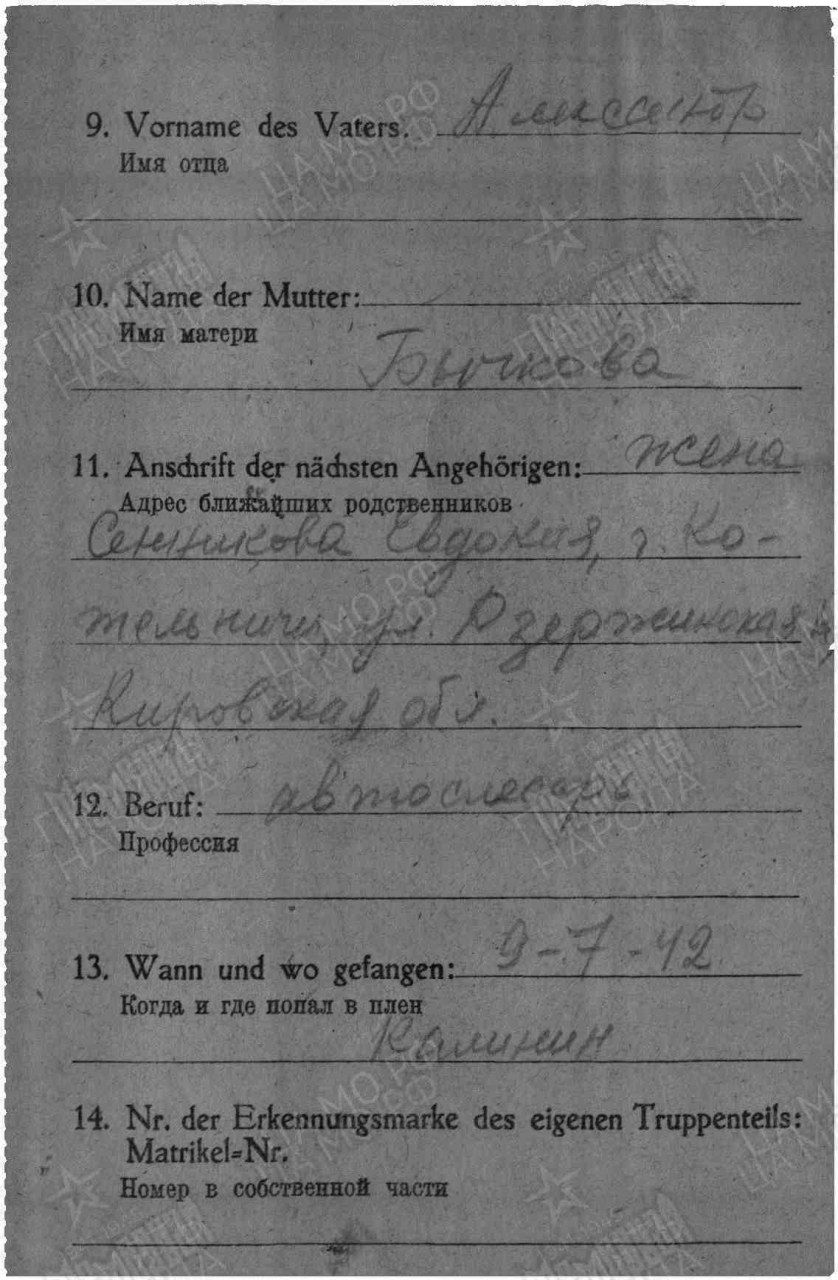 9. Vorname des Vaters. Александр
Имя отца
10. Name der Mutter:
Имя матери
Бычкова
11. Anschrift der nächsten Angehörigen: жена
Адрес ближайших родственников
Сенникова Евдокия, г. Ко-
тельничи, ул. Дзержинская
Кировская обл.
12. Beruf: автослесарь
Профессия
13. Wann und wo gefangen: 9-7-42
Когда и где попал в плен
Калинин
14. Nr. der Erkennungsmarke des eigenen Truppenteils:
Matrikel=Nr.
Номер в собственной части